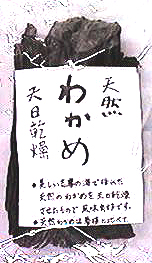 天然
わかめ
天日乾燥
●美しい志摩の海で採れた
天然のわかめを天日乾燥
させたもので風味抜群です。
●天然わかめは養殖に比べて